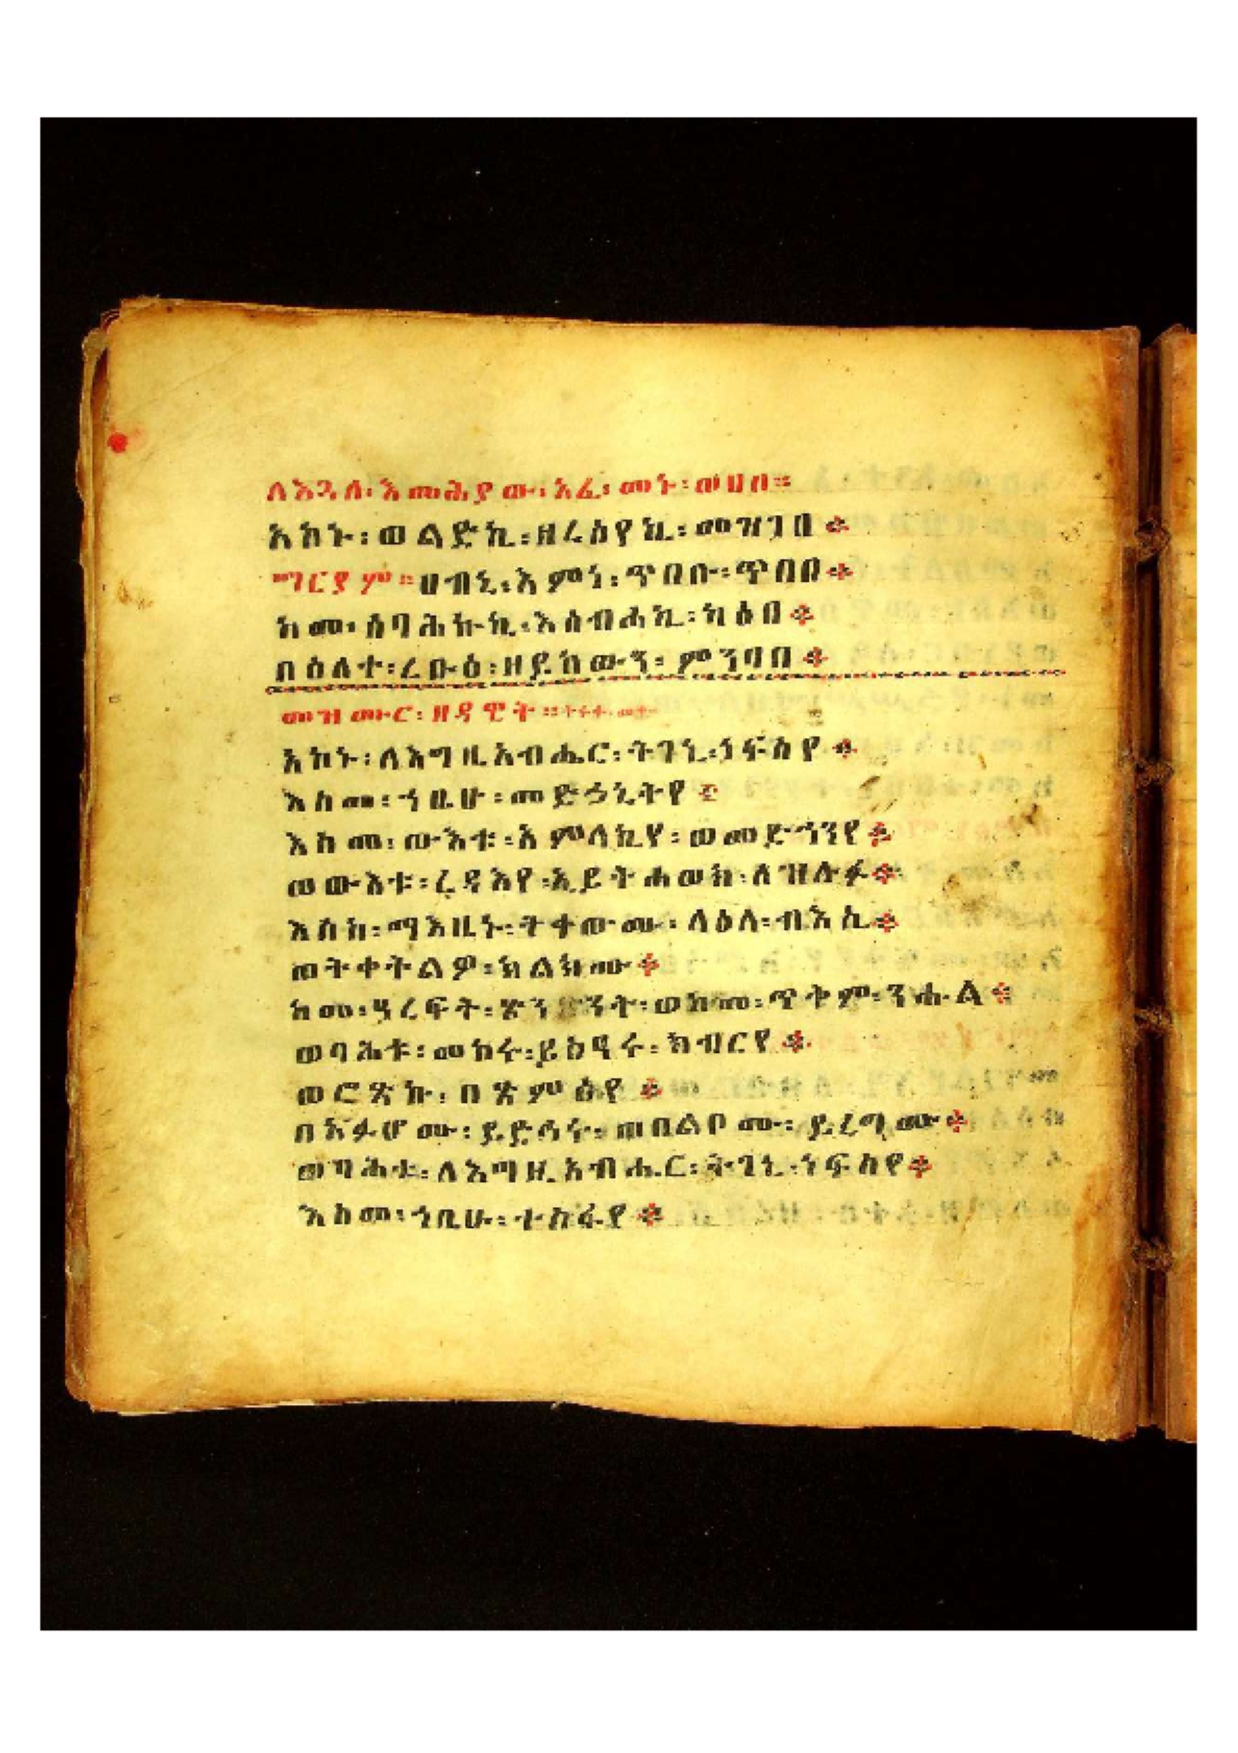 ለእጓለ፡እመሕያው፡አፈ፡መኑ፡ወሀበ።
አኮኑ፡ወልድኪ፡ዘረሰየኪ፡መዝገበ፨
ማርያም፡ሀብኒ፡እምነ፡ጥበቡ፡ጥበበ፨
ከመ፡ሰባሕኩኪ፡እሰብሐኪ፡ካዕበ፨
በዕለተ፡ረቡዕ፡ዘይከውን፡ምንባበ፨
መዝሙር፡ዘዳዊት።
አኮኑ፡ለእግዚአብሔር፡ትገኒ፡ነፍስየ፨
እስመ፡ኀቤሁ፡መድኃኒትየ
እስመ፡ውእቱ፡አምላኪየ፡ወመድኀንየ፨
ወውእቱ፡ረዳእየ፡ኢይትሐወክ፡ለዝሉፉ፨
እስከ፡ማእዜኑ፡ትቀውሙ፡ላዕለ፡ብእሲ፨
ወትቀትልዎ፡ክልክሙ፨
ከመ፡ዓረፍት፡ጽንንት፡ወከመ፡ጥቅም፡ንሑል፨
ወባሕቱ፡መከሩ፡ይስዓሩ፡ክብርየ፨
ወሮጽኩ፡በጽምዕየ፨
በአፉሆሙ፡ይድኅሩ፡ወበልቦሙ፡ይረግሙ፨
ወባሕቱ፡ለእግዚአብሔር፡ትገኒ፡ነፍስየ፨
እስመ፡ኀቤሁ፡ተስፋየ፨